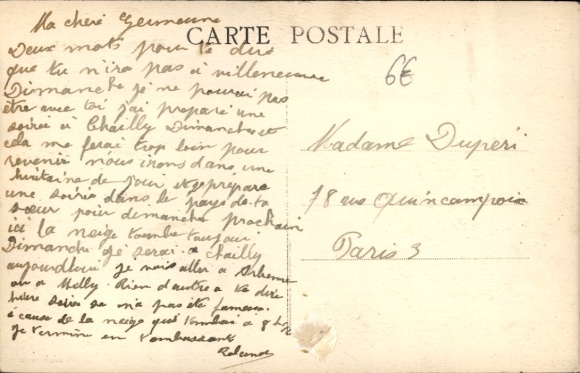 CARTE POSTALE
6€
Ma cheri Germaine
Deux mots pour te dire
que tu n'ira pas a villeneuve
Dimanche je ne pourai pas
être avec toi j'ai preparé une
soirée a Chailly Dimanche et
cela me ferai trop loin pour
revenir nous irons dans une
huitaine de jour et je prepare
une soirée dans le pays de ta
sœur pour dimanche prochain
ici la neige tombe toujour
Dimanche je serai a Chailly
aujourdhui je vais aller a
ou a Milly. Rien d'autre a te dire
hiere soirée sa m'a pas été fameux
a cause de la neige qui tombai a 8 h
je termine en t'embrassant
Roland
Madame Duperi
78 rue Quincampoix
Paris 3